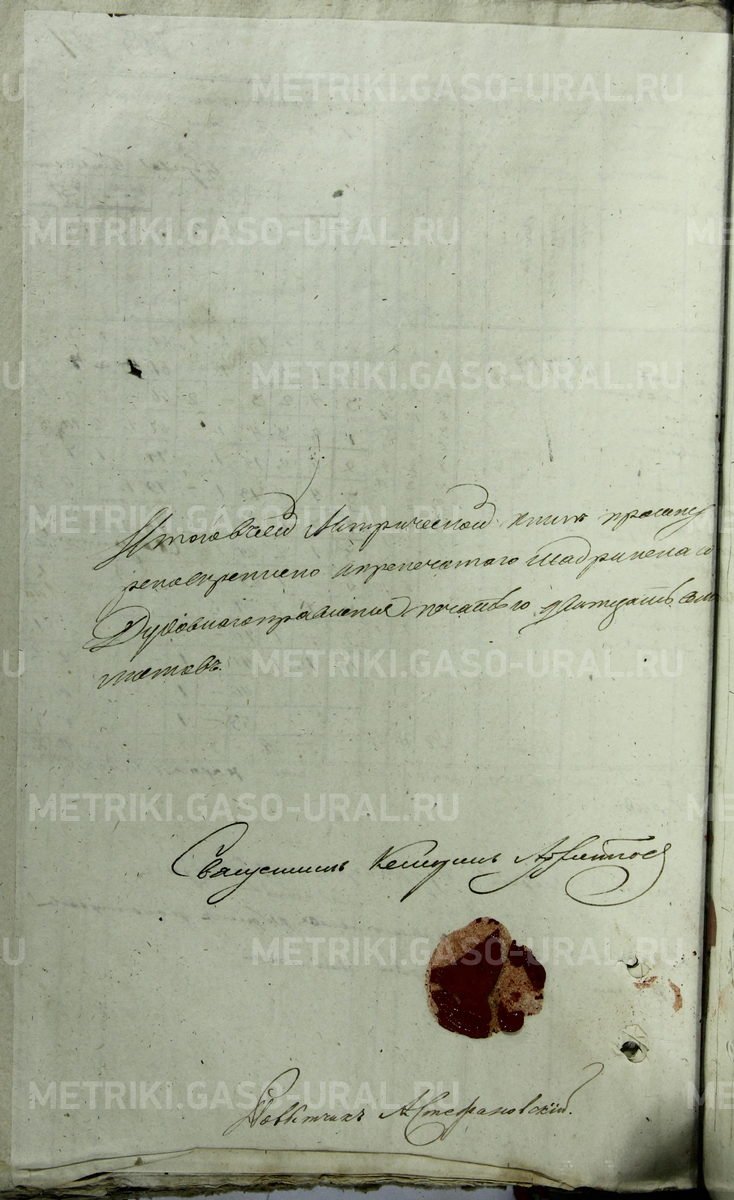 METRIKI.GASO-URAL.RU
METRIKI.GASO-URAL.RU
METRIKI.GASO-URAL.RU
METRIKI.GASO-URAL.RU
Итого въ сей Метрической книгѣ прошну
рено скреплено и препечатаго Шадринскаго
Духовнаго правления печатью
листовъ.
METRIKI.GASO-URAL.RU
METRIKI.GASO-URAL.RU
Священникъ
METRIKI.GASO-URAL.RU
Повытчикъ А Стефановскій.
METRIKI.GASO-URAL.RU